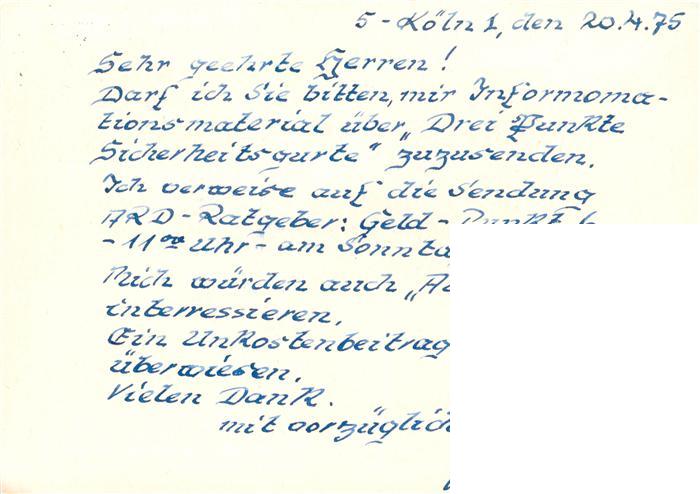 5 - Köln 1, den 20.4.75
Sehr geehrte Herren!
Darf ich Sie bitten, mir Informoma-
tionsmaterial über „Drei Punkte
Sicherheitsgurte" zuzusenden.
Ich verweise auf die Sendung
ARD-Ratgeber: Geld - Punkt
- 11 00 Uhr - am Sonnta
Mich würden auch
interressieren.
Ein Unkostenbeitrag
überwiesen.
Vielen Dank.
mit vorzüglich